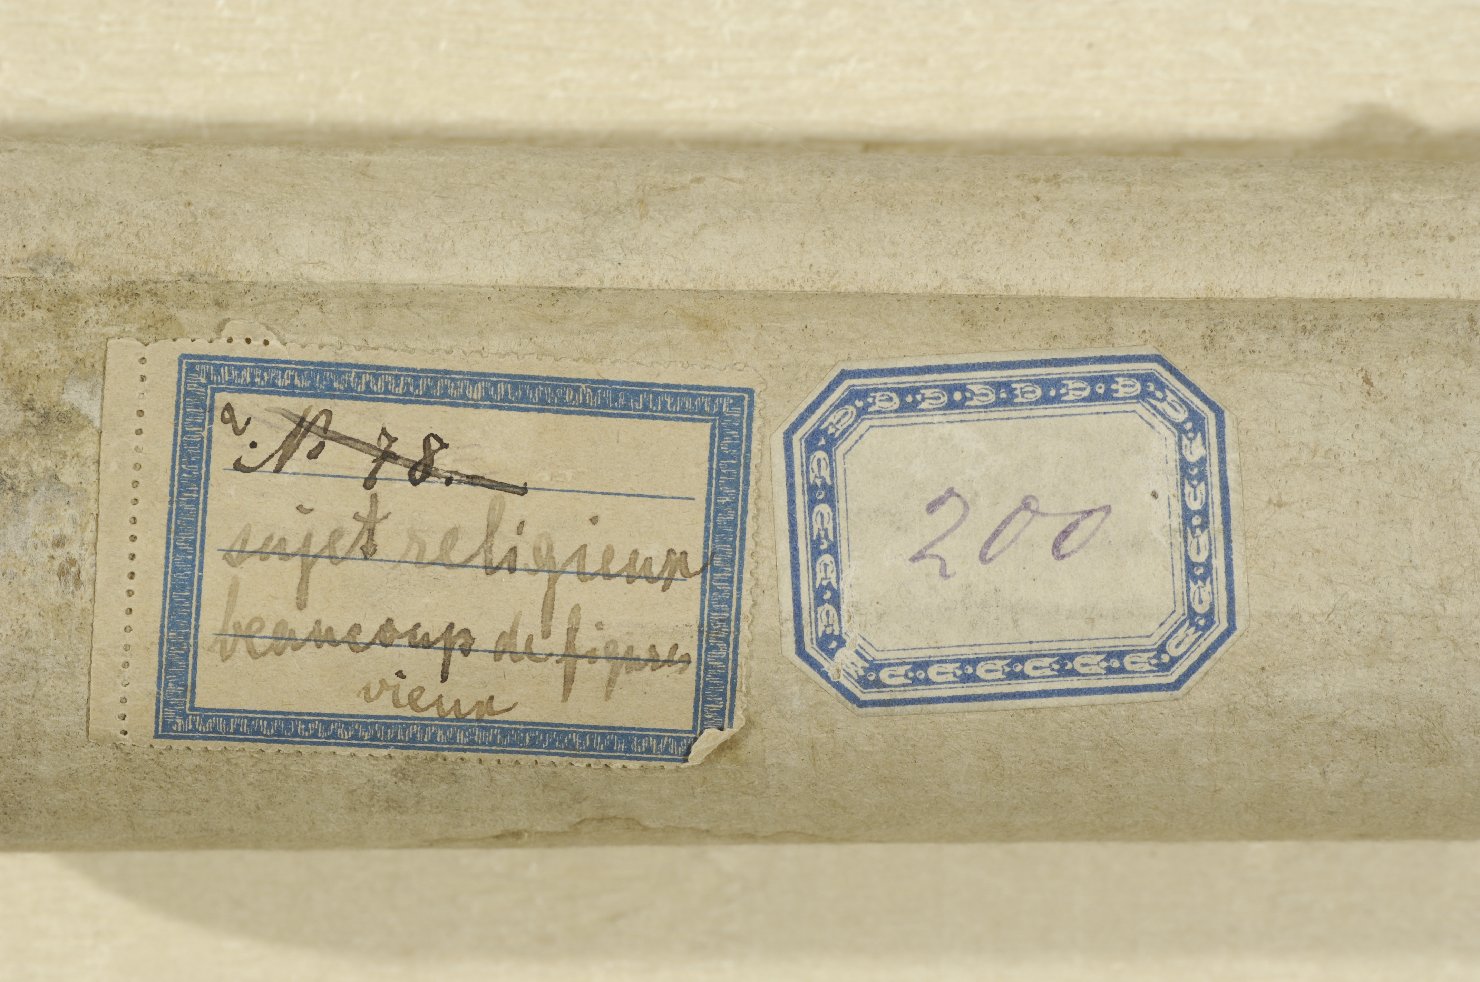 N° 78.
sujet religieux
beaucoup de figures
vieux
200